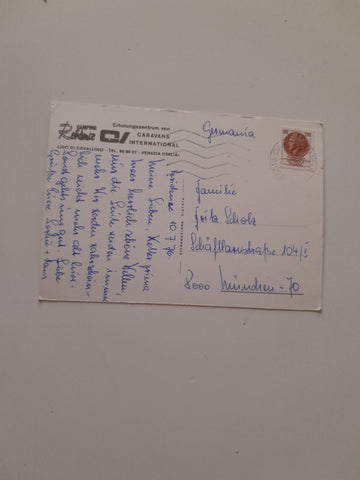 CAMPING
Residence
Erholungszentrum von
CARAVANS
INTERNATIONAL
LIDO DI CAVALLINO - TEL. 96 80 27 - VENEZIA (ITALIA)
Residence 10.7.76
Meine Lieben. Wetter prima
Meer herrlich schöne Wellen,
nur die Leute werden immer
mehr. Wir werden wahrschein-
lich nicht mehr alt hier.
Sonst gehts uns gut. Liebe
Grüße
Germania
Familie
Fritz Scholz
Schäftlarnstraße 104/I
8000 München-70